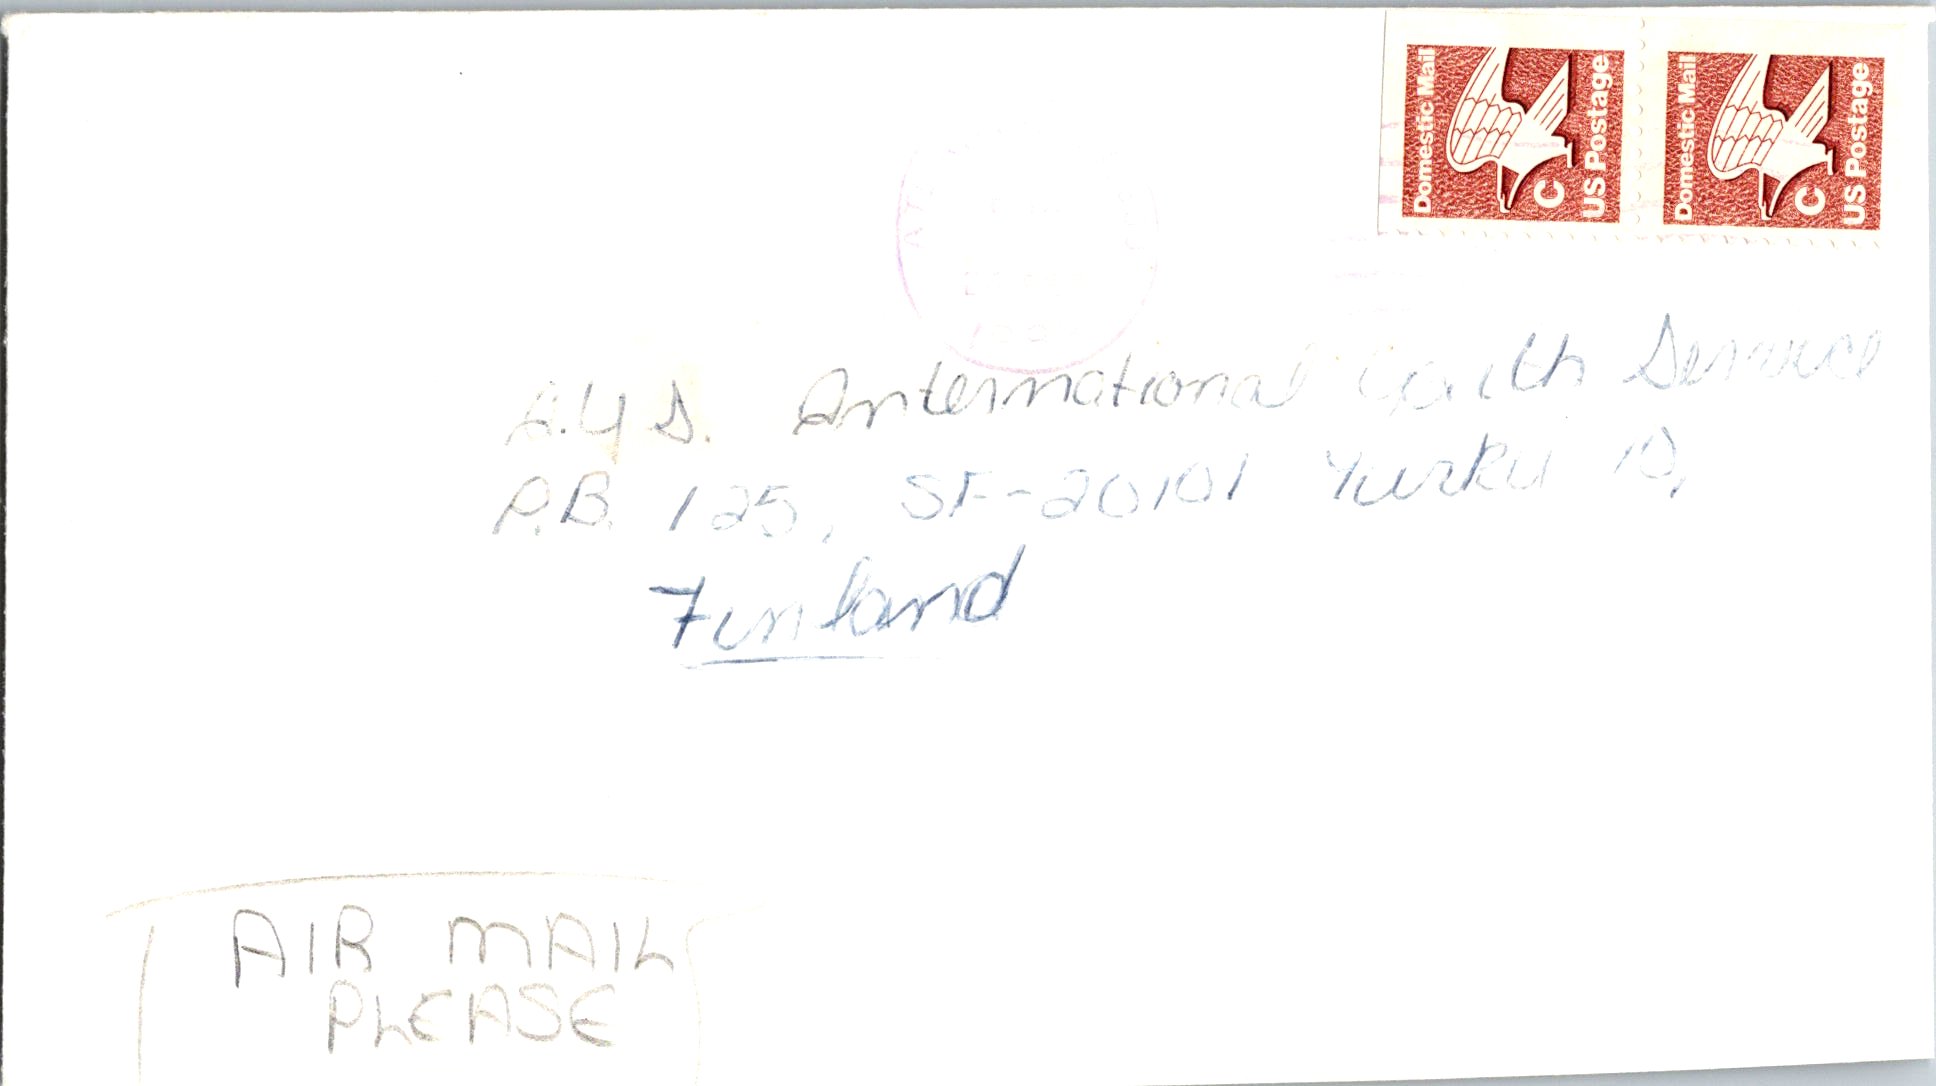 Domestic Mail
C
US Postage
Domestic Mail
C
US Postage
I.Y.S. International Youth Service
P.B. 125, SF-20101 Turku 10,
Finland
AIR MAIL
PLEASE